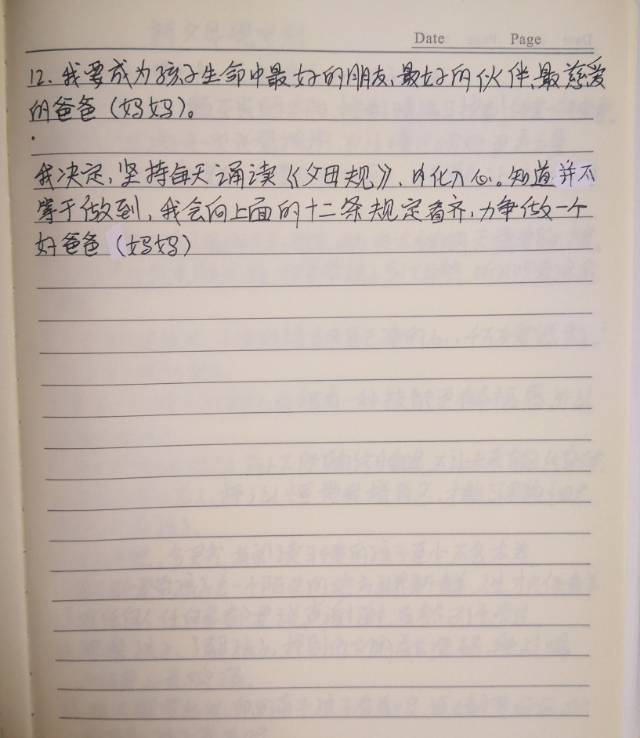 Date Page
12. 我要成为孩子生命中最好的朋友、最好的伙伴、最慈爱
的爸爸(妈妈)。
我决定,坚持每天诵读《父母规》,以化入心。知道并不
等于做到,我会向上面的十二条规定看齐,力争做一个
好爸爸(妈妈)